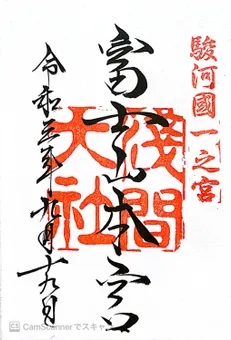 駿河國一之宮
富士山本宮
淺間
大社
令和三年九月十九日
CS CamScannerでスキャ